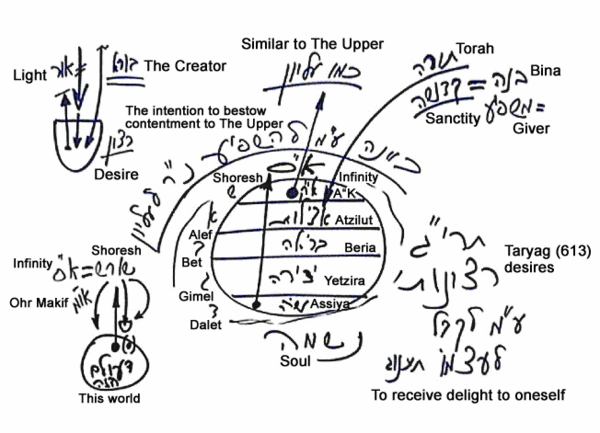 Similar to The Upper
כמו עליון
Torah
תורה
Light אור =
בורא The Creator
קדושה = בינה Bina
Sanctity משפיע =
Giver
The intention to bestow
contentment to The Upper
כוונה ע"מ להשפיע נ"ר לעליון
רצון
Desire
א"ס
Shoresh ש Infinity
א"ק A"K
א אצילות Atzilut
Alef
בריאה Beria
Bet
יצירה Yetzira
Gimel
עשיה Assiya
Dalet
נשמה
Soul
תרי"ג
רצונות
Taryag (613)
desires
ע"מ לקבל
לעצמו תענוג
To receive delight to oneself
Shoresh
Infinity א"ס = שורש
Ohr Makif או"מ
העולם
הזה
This world